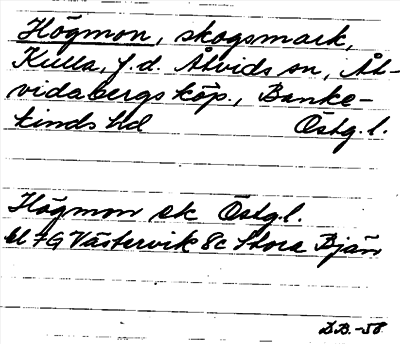 Högmon, skogsmark,
Kulla, f.d. Åtvids sn, Åt-
vidabergs köp., Banke-
kinds hd Östg.l.
Högmon ek Östg.l.
bl 7G Västervik 8c Stora Bjän
D.B.-58